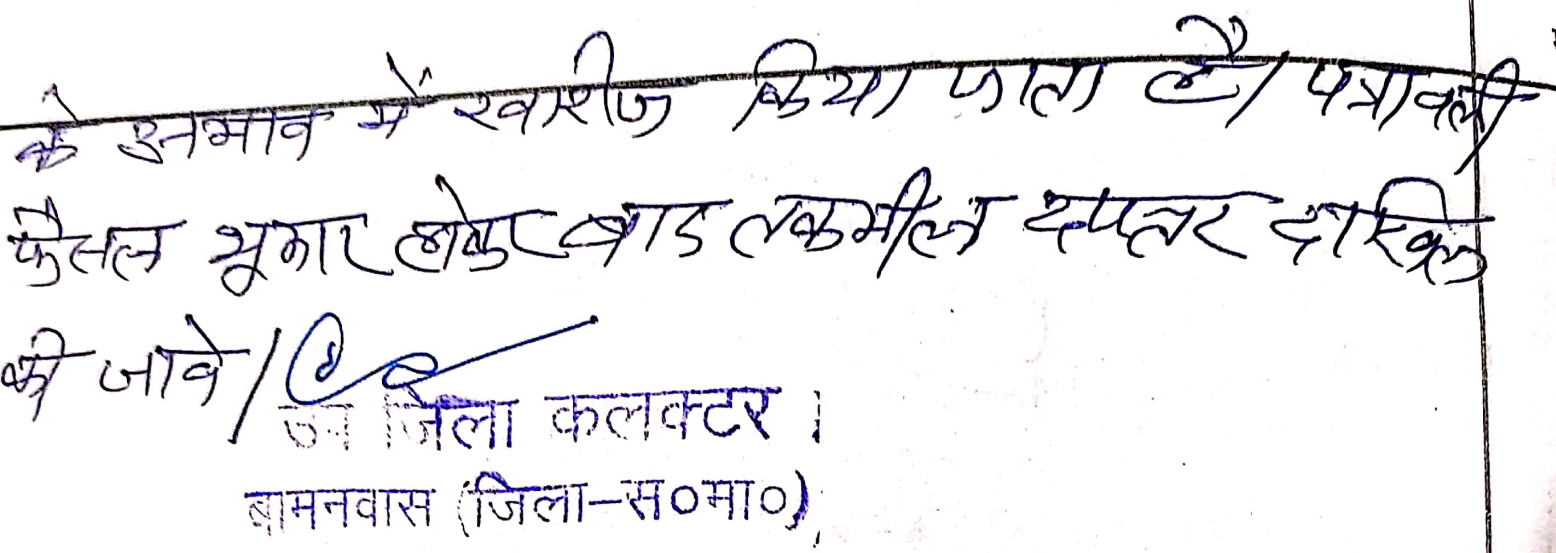 के अभाव में खारीज किया जाता है। पत्रावली
फैसल शुमार होकर बाद तकमील दफ्तर दाखिल
की जावे।
उप जिला कलक्टर।
बामनवास (जिला-स०मा०)